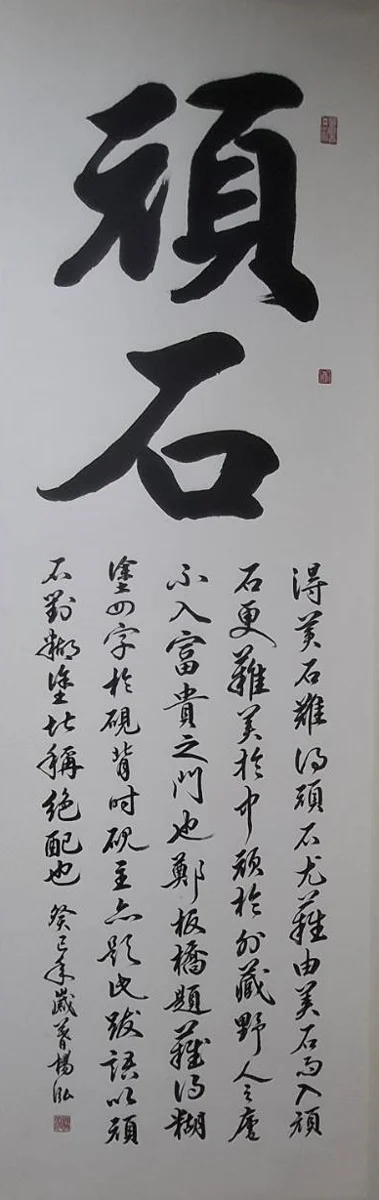 頑石
得美石難得頑石尤難由美石而入頑
石更難美於中頑於外藏野人之廬
不入富貴之門也鄭板橋題難得糊
塗四字於硯背時硯主亦題此跋語以頑
石對糊塗比稱絕配也 癸巳年歲暮楊泓